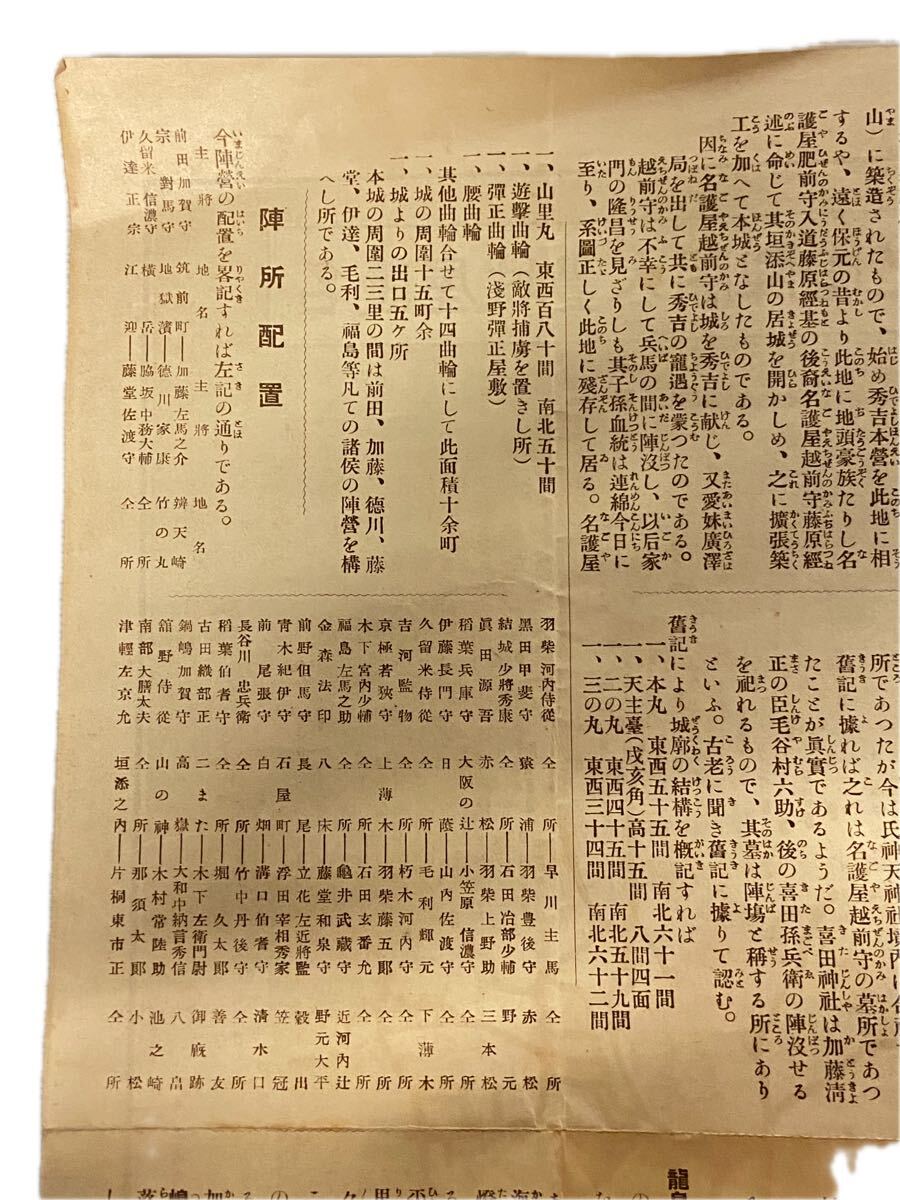 山）に築造されたもので、始め秀吉本營を此地に相
するや、遠く保元の昔より此地に地頭豪族たりし名
護屋肥前守入道藤原經基の後裔名護屋越前守藤原經
述に命じて其垣添山の居城を開かしめ、之に擴張築
工を加へて本城となしたものである。
因に名護屋越前守は城を秀吉に献じ、又愛妹廣澤
局を出して共に秀吉の寵遇を蒙つたのである。
越前守は不幸にして兵馬の間に陣沒し、以后家
門の隆昌を見ざりしも其子孫血統は連綿今日に
至り、系圖正しく此地に殘存して居る。名護屋
所であつたが今は氏神天神社境内に
舊記に據れば之れは名護屋越前守の墓所であつ
たことが眞實であるようだ。喜田神社は加藤淸
正の臣毛谷村六助、後の喜田孫兵衛の陣沒せる
を祀れるもので、其墓は陣塲と稱する所にあり
といふ。古老に聞き舊記に據りて認む。
舊記により城廓の結構を概記すれば
一、本丸　東西五十五間　南北六十一間
一、天主臺（戌亥角）高十五間　八間四面
一、二の丸　東西四十五間　南北五十九間
一、三の丸　東西三十四間　南北六十二間
一、山里丸　東西百八十間　南北五十間
一、遊擊曲輪（敵將捕虜を置きし所）
一、彈正曲輪（淺野彈正屋敷）
一、腰曲輪
其他曲輪合せて十四曲輪にして此面積十余町
一、城の周圍十五町余
一、城よりの出口五ヶ所
本城の周圍二三里の間は前田、加藤、德川、藤
堂、伊達、毛利、福島等凡ての諸侯の陣營を構
へし所である。
陣所配置
今陣營の配置を畧記すれば左記の通りである。
主將　地名　主將　地名
前田加賀守　筑前町―加藤左馬之介　辨天崎
宗對馬守　地獄濱―德川家康　竹の丸
久留米信濃守　橫岳―脇坂中務大輔　仝所
伊達正宗　江迎―藤堂佐渡守　仝所
羽柴河内侍從　仝所―早川主馬　仝所
黒田甲斐守　猿浦―羽柴豊後守　赤松
結城少將秀康　仝所―石田冶部少輔　野元
眞田源吾　赤松―羽柴上野助　三本松
稻葉兵庫守　大阪の辻―小笠原信濃守　仝所
伊藤長門守　日蔭―山内佐渡守　仝所
久留米侍從　仝所―毛利輝元　下薄木
吉河監物　仝所―朽木河内守　仝所
京極若狹守　上薄木―羽柴藤五郎　仝所
木下宮内少輔　仝所―石田玄番允　仝所
福島左馬之助　仝所―龜井武蔵守　近河内辻
金森法印　八床―藤堂和泉守　野元大平
前野但馬守　長尾―立花左近將監　殿出
青木紀伊守　石屋町―浮田宰相秀家　笠冠
前尾張守　白畑―溝口伯耆守　淸水口
長谷川忠兵衛　仝所―竹中丹後守　仝所
稻葉伯者守　仝所―堀久太郎　善友
古田織部正　二また―木下左衛門尉　御厩跡
鍋嶋加賀守　高嶽―大和中納言秀信　八畠
舘野侍從　山の神―木村常陸助　池之崎
南部大膳太夫　仝所―那須太郞　小松
津輕左京允　垣添之内―片桐東市正　仝所